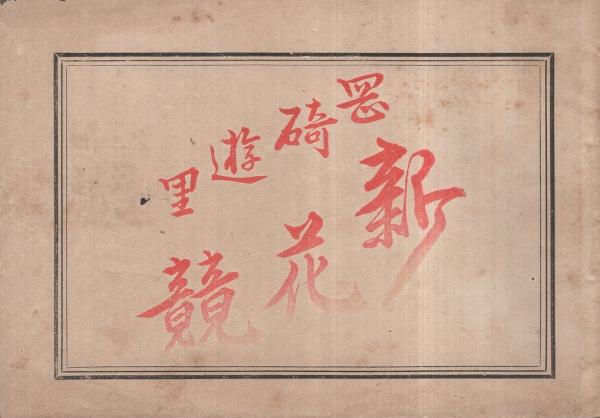 岡碕遊里
新花競